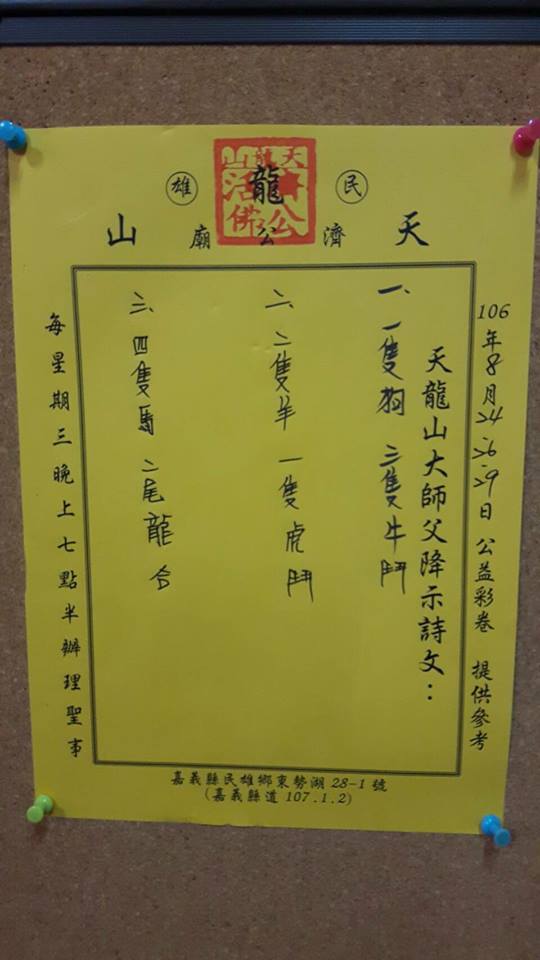 民雄
天龍山
濟公廟
天龍山
濟公
活佛
106年8月24.26.29日 公益彩卷 提供參考
天龍山大師父降示詩文：
一、一隻狗 三隻牛鬥
二、二隻羊 一隻虎鬥
三、四隻馬 二尾龍
每星期三晚上七點半辦理聖事
嘉義縣民雄鄉東勢湖28-1號
(嘉義縣道107.1.2)